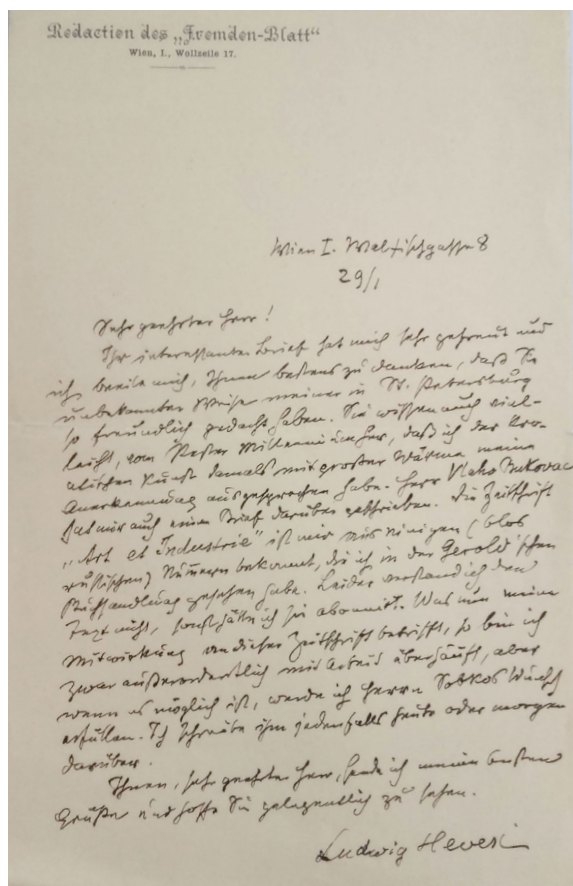 Redaction des „Fremden-Blatt“
Wien, I., Wollzeile 17.
Wien I. Wallfischgasse 8
29/1
Sehr geehrter Herr!
Ihr interessanter Brief hat mich sehr gefreut und
ich beeile mich, Ihnen bestens zu danken, daß Sie
unbekannter Weise meiner in St. Petersburg
so freundlich gedacht haben. Sie wissen auch viel-
leicht, vom Pester Millennium her, daß ich der kro-
atischen Kunst damals mit großer Wärme meine
Anerkennung ausgesprochen habe. Herr Vlaho Bukovac
hat mir auch einen Brief darüber geschrieben. Die Zeitschrift
„Art et Industrie“ ist mir aus einigen (blos
russischen) Nummern bekannt, die ich in der Gerold'schen
Buchhandlung gesehen habe. Leider verstand ich den
Text nicht, sonst hätte ich sie abonnirt. Was nun meine
Mitwirkung an dieser Zeitschrift betrifft, so bin ich
zwar außerordentlich mit Arbeit überhäuft, aber
wenn es möglich ist, werde ich Herrn Sobkos Wunsch
erfüllen. Ich schreibe ihm jedenfalls heute oder morgen
darüber.
Ihnen, sehr geehrter Herr, sende ich meine besten
Grüße und hoffe Sie gelegentlich zu sehen.
Ludwig Hevesi